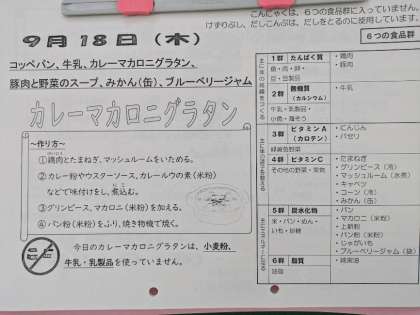 こんにゃくは、6つの食品群に入っていません。
けずりぶし、だしこんぶは、だしをとるのに使用しています。
9月18日（木）
コッペパン、牛乳、カレーマカロニグラタン、
豚肉と野菜のスープ、みかん(缶)、ブルーベリージャム
カレーマカロニグラタン
~作り方~
①鶏肉とたまねぎ、マッシュルームをいためる。
②カレー粉やウスターソース、カレールウの素（米粉）
などで味付けをし、煮込む。
③グリンピース、マカロニ（米粉）を加える。
④パン粉（米粉）をふり、焼き物機で焼く。
今日のカレーマカロニグラタンは、小麦粉、
牛乳・乳製品を使っていません。
6つの食品群
1群 たんぱく質
魚・肉・卵・
豆・豆製品
・鶏肉
・豚肉
2群 無機質
（カルシウム）
牛乳・乳製品・
小魚・海そう
・牛乳
3群 ビタミンA
（カロテン）
緑黄色野菜
・にんじん
・パセリ
4群 ビタミンC
その他の野菜・果物
・たまねぎ
・グリンピース（冷）
・マッシュルーム（水煮）
・キャベツ
・コーン（冷）
・みかん（缶）
5群 炭水化物
米・パン・めん・
いも・砂糖
・パン
・マカロニ（米粉）
・上新粉
・パン粉（米粉）
・じゃがいも
・ブルーベリージャム（袋）
6群 脂質
油脂